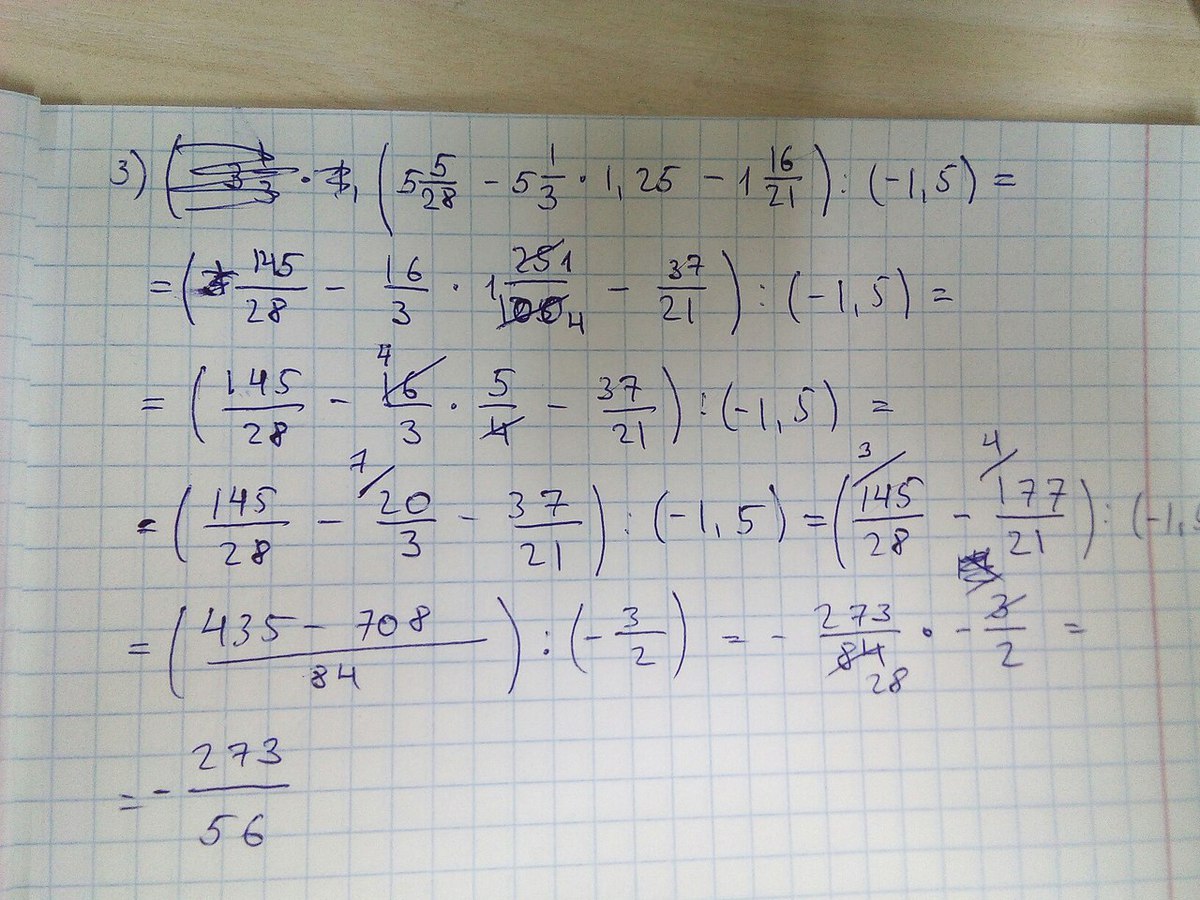 3) (5 5/28 - 5 1/3 · 1,25 - 1 16/21) : (-1,5) =
= (145/28 - 16/3 · 1 1/4 - 37/21) : (-1,5) =
= (145/28 - 16/3 · 5/4 - 37/21) : (-1,5) =
= (145/28 - 20/3 - 37/21) : (-1,5) = (145/28 - 177/21) : (-1,5
= (435 - 708 / 84) : (- 3/2) = - 273/84 · - 3/2 =
= - 273/56